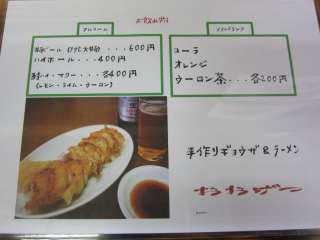 お飲み物
アルコール
瓶ビール (アサヒ大瓶)...600円
ハイボール...400円
酎ハイ・サワー...各400円
(レモン・ライム・ウーロン)
ソフトドリンク
コーラ
オレンジ
ウーロン茶...各200円
手作りギョウザ&ラーメン